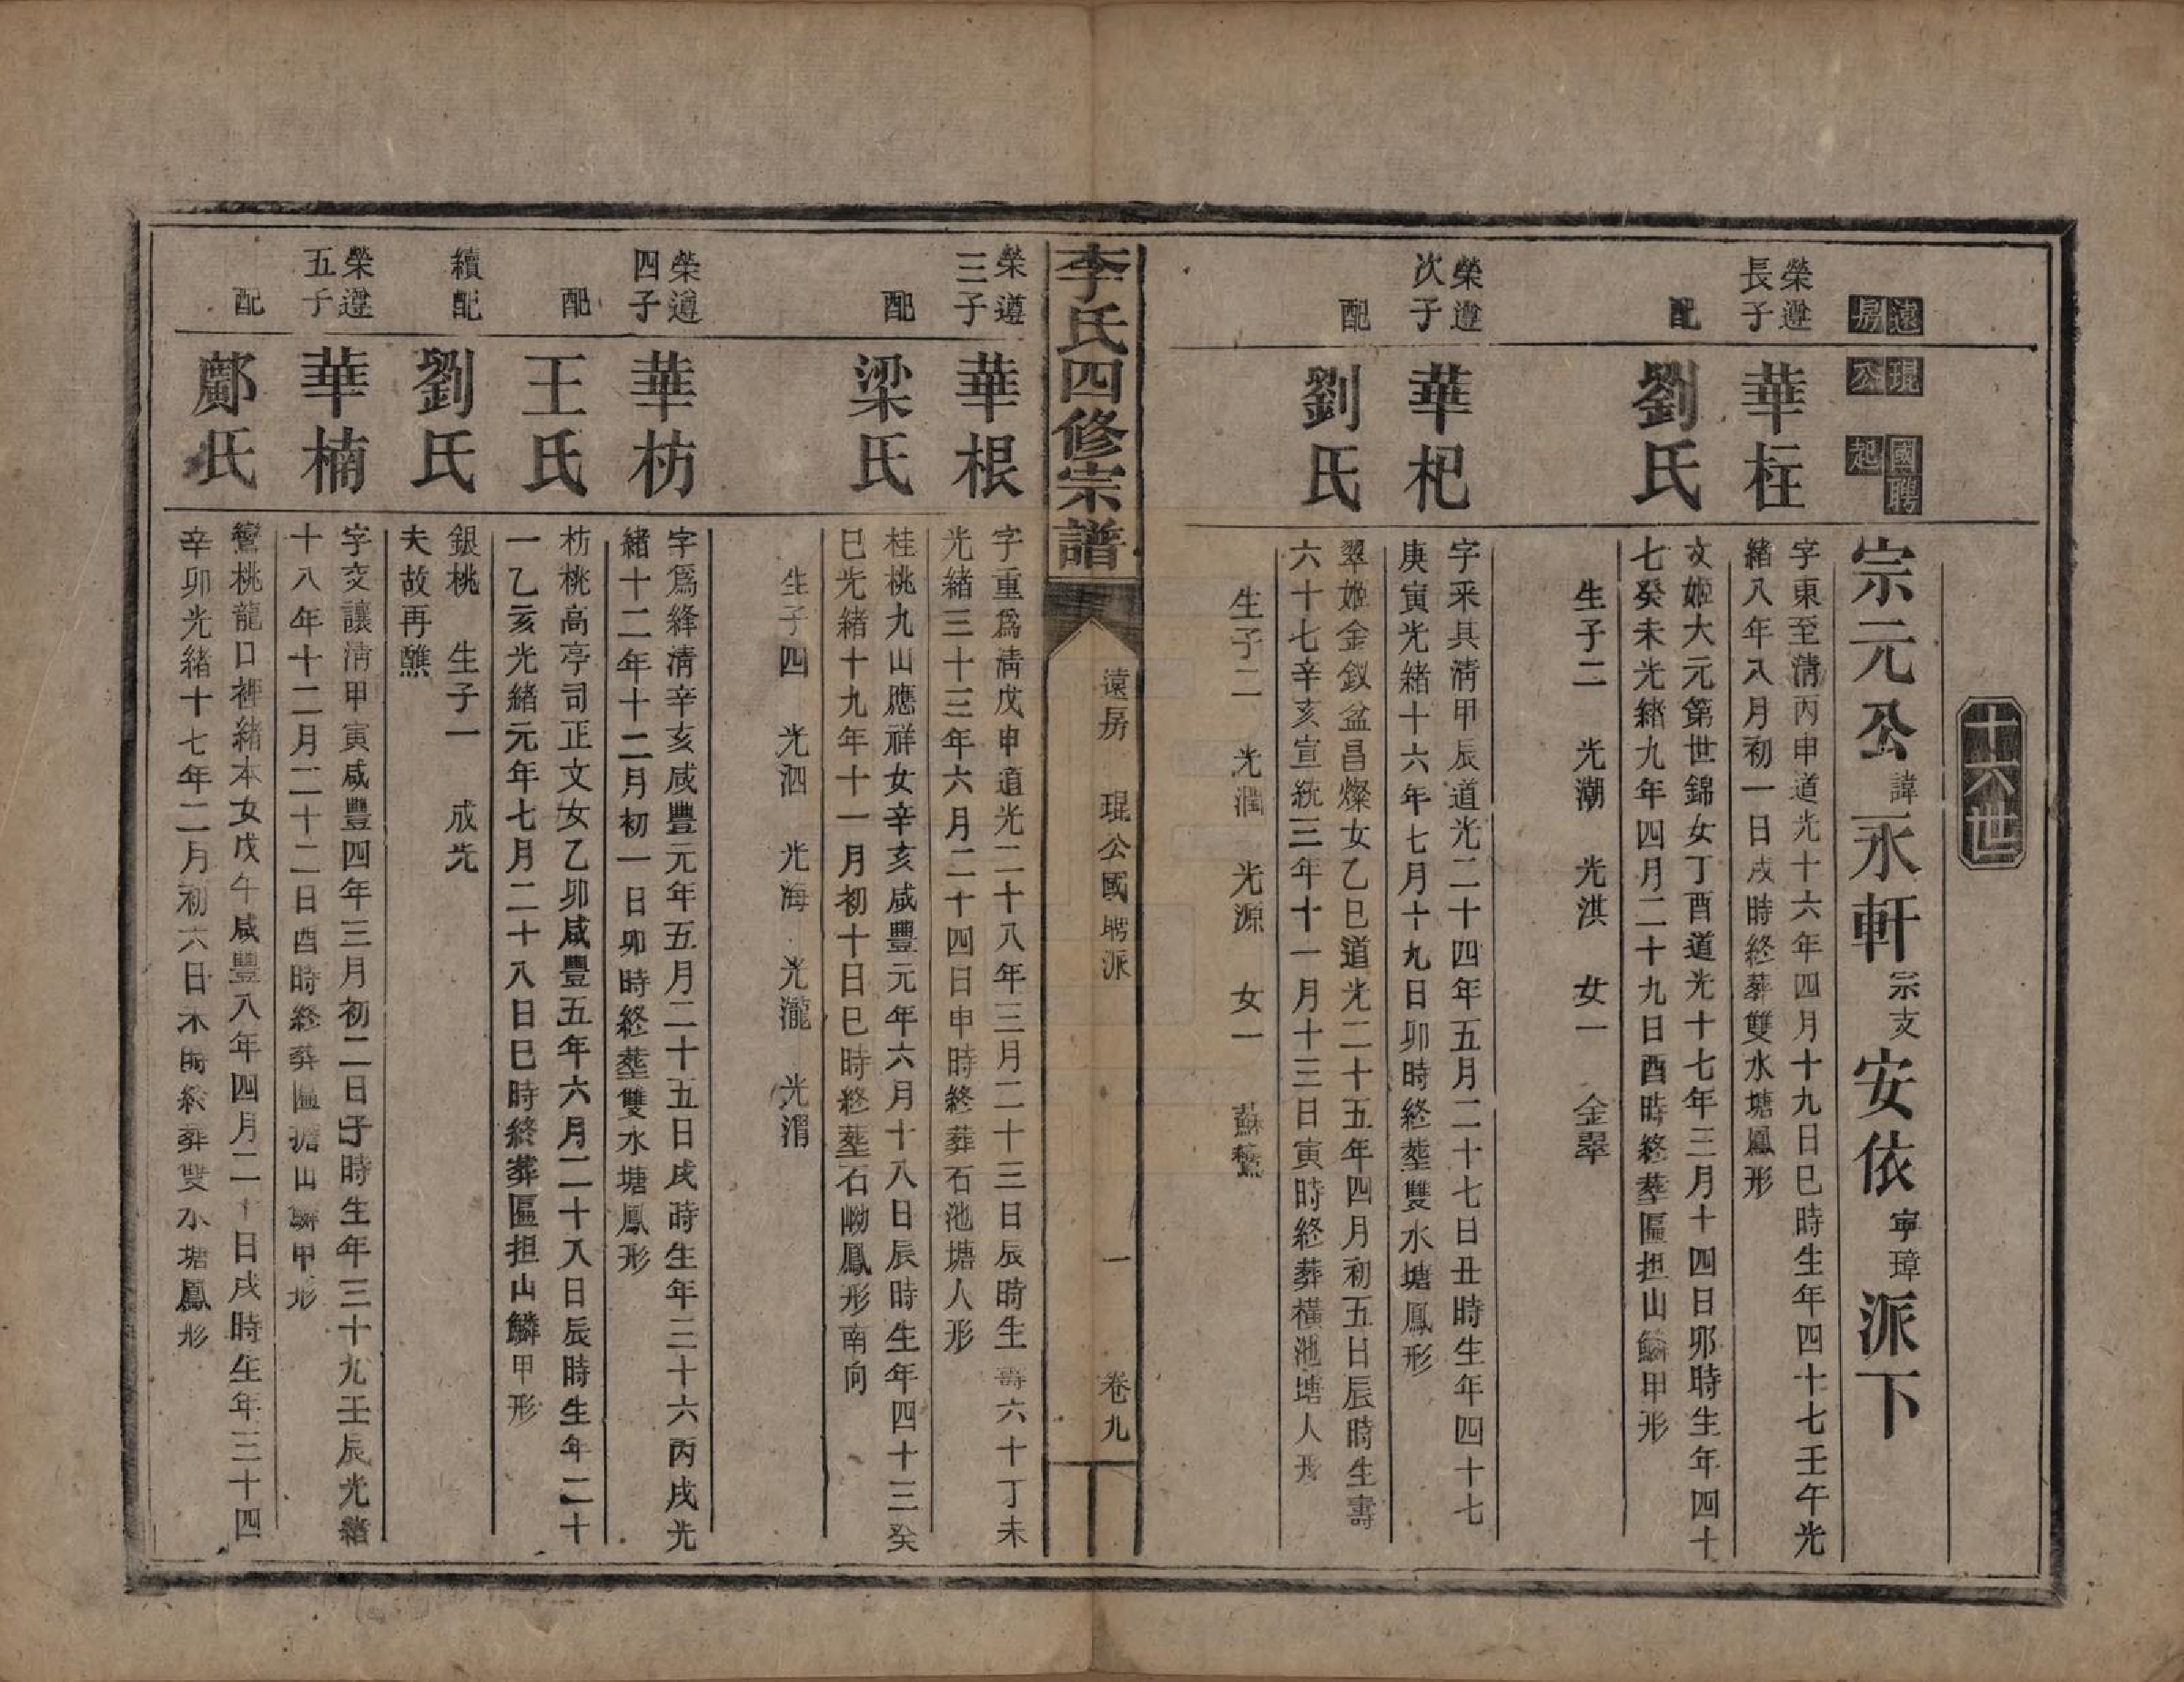 十六世
遠房 琨公 國聘起
宗元公諱永軒宗支安依寧璋派下
榮遵長子 華柱
字東至淸丙申道光十六年四月十九日巳時生年四十七壬午光
緒八年八月初一日戌時終葬雙水塘鳳形
配 劉氏
文姬大元第世錦女丁酉道光十七年三月十四日卯時生年四十
七癸未光緒九年四月二十九日酉時終塟區担山鱗甲形
生子二 光潮 光淇 女一 金翠
榮遵次子 華杞
字采其淸甲辰道光二十四年五月二十七日丑時生年四十七
庚寅光緒十六年七月十九日卯時終塟雙水塘鳳形
配 劉氏
翠姬金釵盆昌燦女乙巳道光二十五年四月初五日辰時生壽
六十七辛亥宣統三年十一月十三日寅時終葬橫池塘人形
生子二 光潤 光源 女一 蘇鶯
李氏四修宗譜
遠房 琨公國聘派 一 卷九
榮遵三子 華根
字重爲淸戊申道光二十八年三月二十三日辰時生壽六十丁未
光緒三十三年六月二十四日申時終葬石池塘人形
配 梁氏
桂桃九山應祥女辛亥咸豐元年六月十八日辰時生年四十三癸
巳光緒十九年十一月初十日巳時終塟石坳鳳形南向
生子四 光泗 光海 光瀧 光渭
榮遵四子 華枋
字爲絳淸辛亥咸豐元年五月二十五日戌時生年三十六丙戌光
緒十二年十二月初一日卯時終塟雙水塘鳳形
配 王氏
枋桃高亭司正文女乙卯咸豐五年六月二十八日辰時生年二十
一乙亥光緒元年七月二十八日巳時終葬區担山鱗甲形
續配 劉氏
銀桃 生子一 成光
夫故再醮
榮遵五子 華楠
字交讓淸甲寅咸豐四年三月初二日子時生年三十九壬辰光緒
十八年十二月二十二日酉時終葬區担山鱗甲形
配 鄺氏
鶯桃龍口裡緒本女戊午咸豐八年四月二十日戌時生年三十四
辛卯光緒十七年二月初六日未時終葬雙水塘鳳形